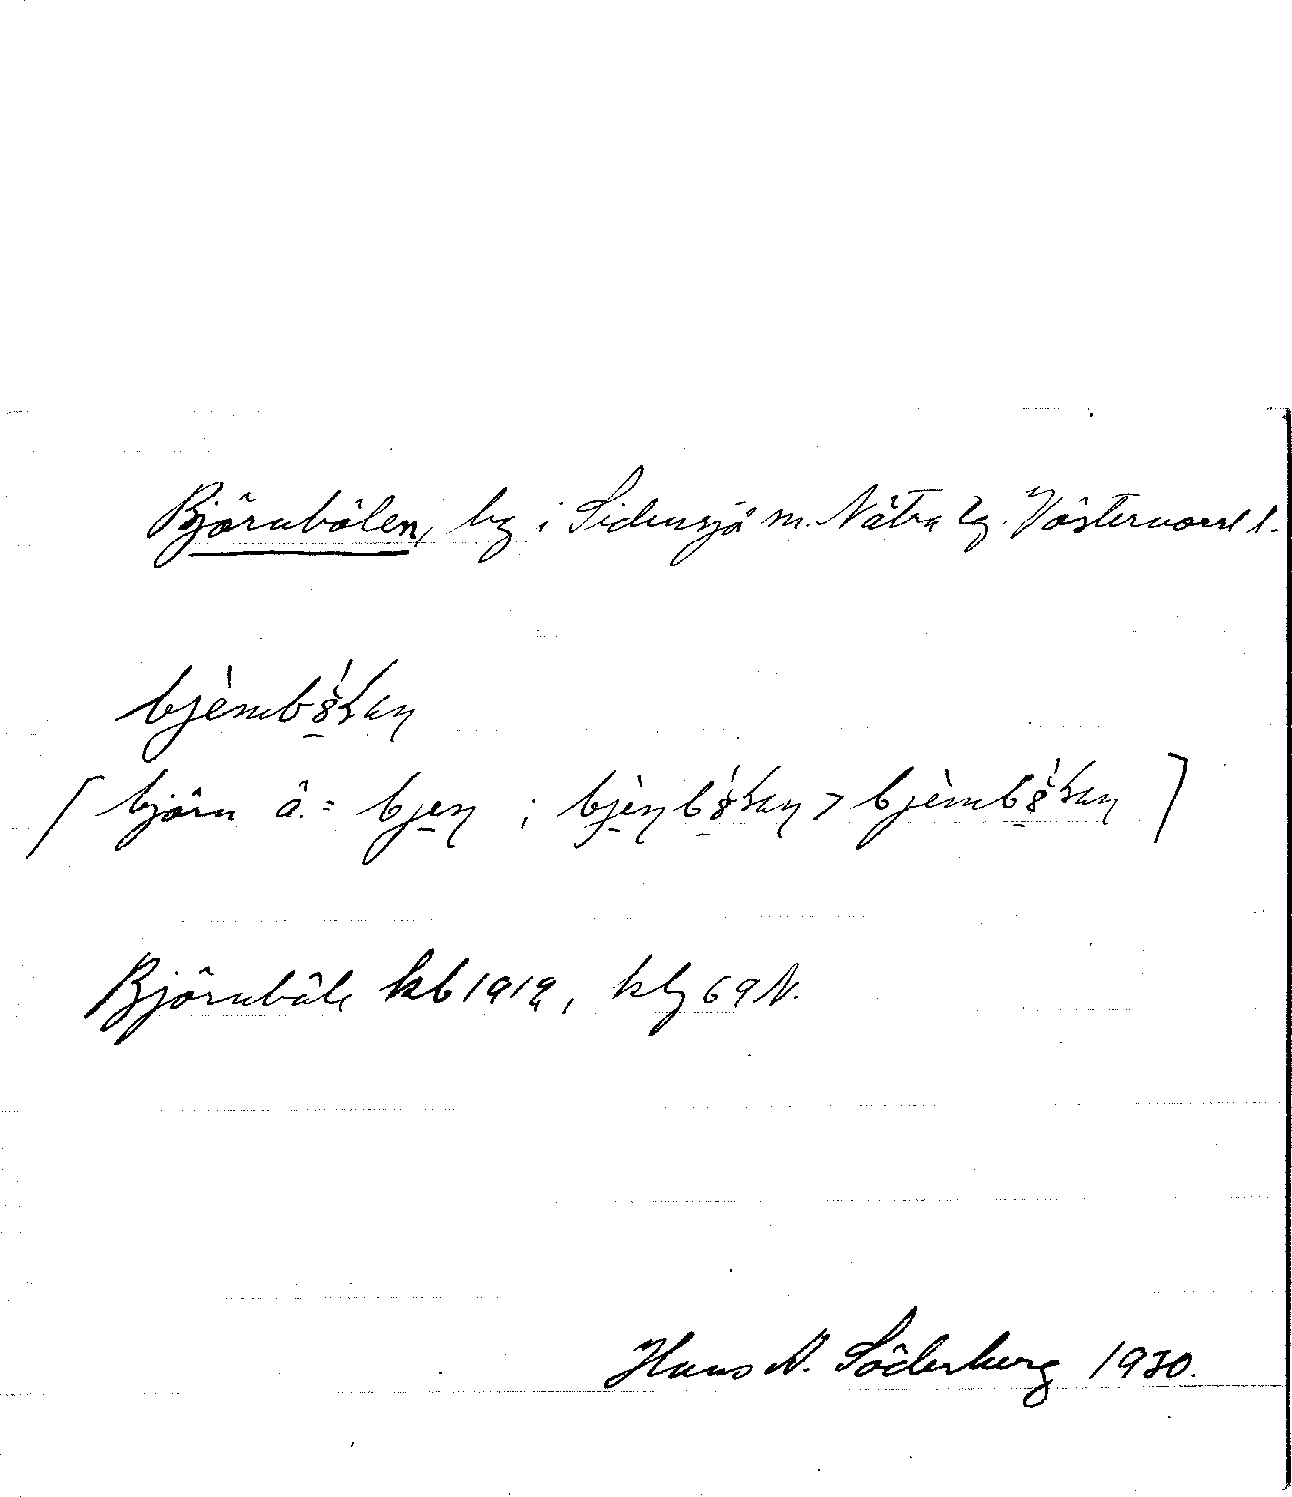 Björnbölen, by i Sidensjö sn. Nätra tg. Västernorrl. l.
bjèmbö̀lan
[björn ä. = bjen ; bjènbö̀lan > bjèmbö̀lan]
Björnböle kb 1919, kb 69 N.
Hans N. Söderberg 1930.